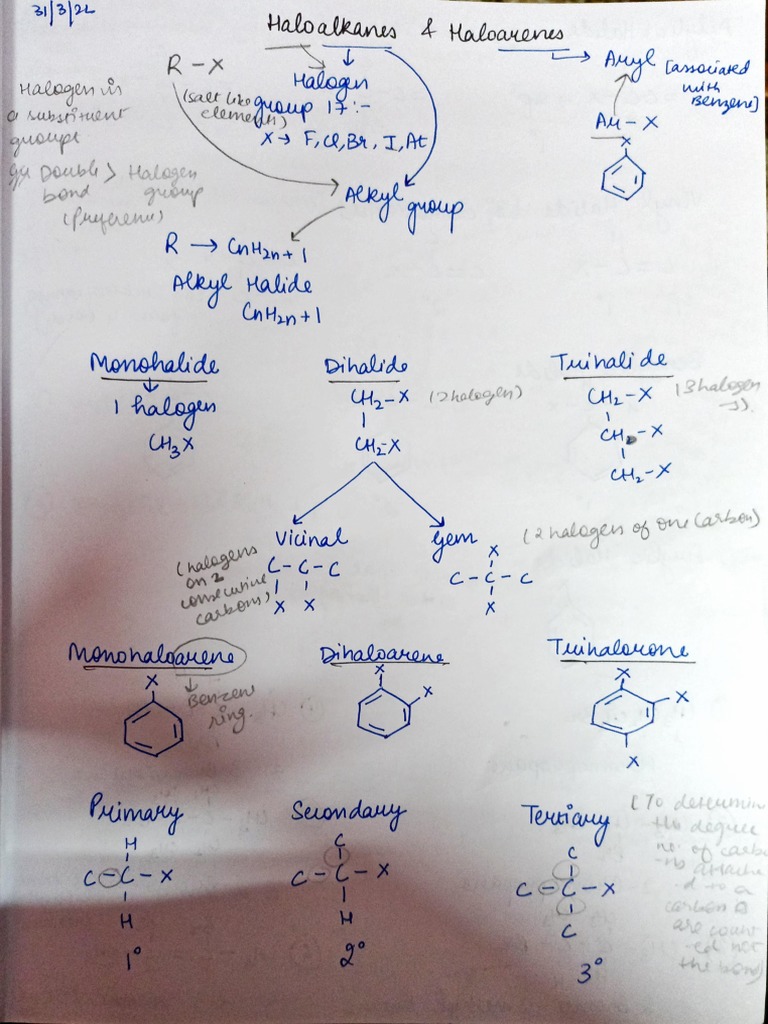 31/3/22
Haloalkanes & Haloarenes
R - X
Halogen
(salt like elements)
group 17:-
X → F, Cl, Br, I, At
Aryl [associated with Benzene]
Ar - X
Halogen is
a substituent
group
Double > Halogen
bond group
(Preference)
Alkyl group
R → CnH2n+1
Alkyl Halide
CnH2n+1
Monohalide
1 halogen
CH3X
Dihalide
CH2-X (2 halogen)
CH2-X
Trihalide
CH2-X (3 halogen
CH2-X
CH2-X
Vicinal
(halogens
on 2
consecutive
carbons)
C - C - C
X X
Gem (2 halogen of one carbon)
X
C - C - C
X
Monohaloarene
X
Benzene
ring.
Dihaloarene
X
X
Trihalorone
X
X
X
Primary
H
C - C - X
H
1°
Secondary
C
C - C - X
H
2°
Tertiary
C
C - C - X
C
3°
(To determin
the degree
no. of carbo
-ns attache
d to a
carbon
are count
-ed not
the bond)